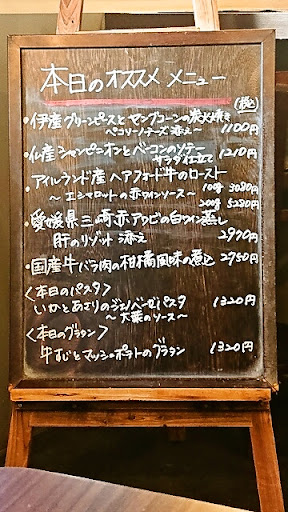 本日のオススメメニュー
(税込)
・伊産グリーンピースとヤングコーンの炭火焼き
ペコリーノチーズ添え〜 1100円
・仏産シャンピニオンとベーコンのソテー
サラダ仕立て 1210円
・アイルランド産ヘアフォード牛のロースト
〜エシャロットの赤ワインソース〜 100g 3080円
200g 5280円
・愛媛県三崎赤アワビの白ワイン蒸し
肝のリゾット添え 2970円
・国産牛バラ肉の柑橘風味の煮込 2750円
〈本日のパスタ〉
いかとあさりのジェノベーゼパスタ 1320円
〜大葉のソース〜
〈本日のグラタン〉
牛すじとマッシュポテトのグラタン 1320円